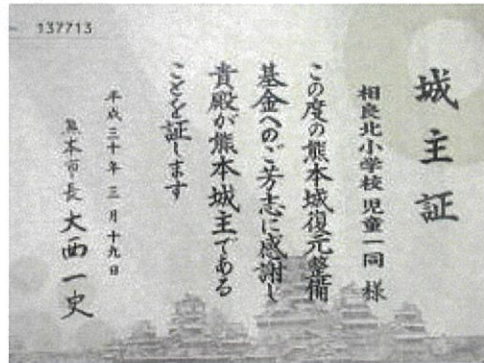 137713
城主証
相良北小学校 児童一同 様
この度の熊本城復元整備
基金へのご芳志に感謝し
貴殿が熊本城主である
ことを証します
平成三十年 三月十九日
熊本市長 大西一史